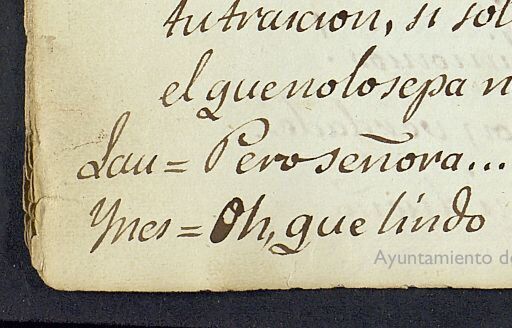 tu traicion, si sol
el que nolosepa
Lau= Pero señora...
Ynes= Oh, que lindo
Ayuntamiento de